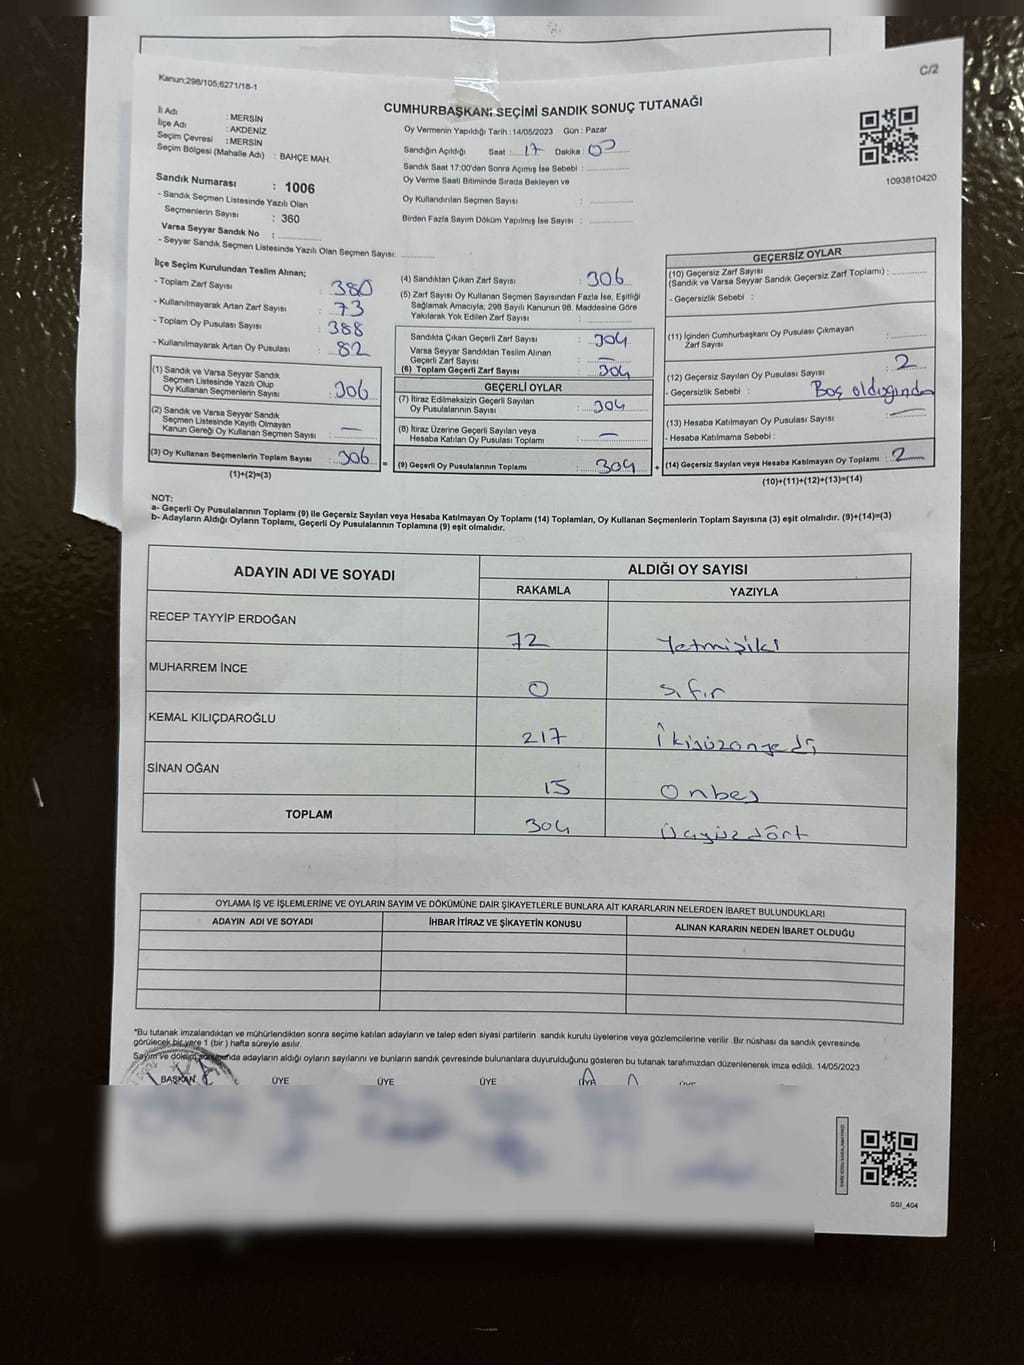 C/2
Kanun;298/105;6271/18-1
CUMHURBAŞKANI SEÇİMİ SANDIK SONUÇ TUTANAĞI
İl Adı : MERSİN
İlçe Adı : AKDENİZ
Seçim Çevresi : MERSİN
Seçim Bölgesi (Mahalle Adı) : BAHÇE MAH.
Sandık Numarası : 1006
- Sandık Seçmen Listesinde Yazılı Olan
Seçmenlerin Sayısı : 360
Varsa Seyyar Sandık No :
- Seyyar Sandık Seçmen Listesinde Yazılı Olan Seçmen Sayısı:
Oy Vermenin Yapıldığı Tarih : 14/05/2023 Gün : Pazar
Sandığın Açıldığı Saat : 17 Dakika : 00
Sandık Saat 17:00'den Sonra Açımış İse Sebebi :
Oy Verme Saati Bitiminde Sırada Bekleyen ve
Oy Kullandırılan Seçmen Sayısı :
Birden Fazla Sayım Döküm Yapılmış İse Sayısı :
1093810420
İlçe Seçim Kurulundan Teslim Alınan;
- Toplam Zarf Sayısı : 380
- Kullanılmayarak Artan Zarf Sayısı : 73
- Toplam Oy Pusulası Sayısı : 388
- Kullanılmayarak Artan Oy Pusulası : 82
(1) Sandık ve Varsa Seyyar Sandık
Seçmen Listesinde Yazılı Olup
Oy Kullanan Seçmenlerin Sayısı : 306
(2) Sandık ve Varsa Seyyar Sandık
Seçmen Listesinde Kayıtlı Olmayan
Kanun Gereği Oy Kullanan Seçmen Sayısı : —
(3) Oy Kullanan Seçmenlerin Toplam Sayısı : 306
(1)+(2)=(3)
=
(4) Sandıktan Çıkan Zarf Sayısı : 306
(5) Zarf Sayısı Oy Kullanan Seçmen Sayısından Fazla İse, Eşitliği
Sağlamak Amacıyla, 298 Sayılı Kanunun 98. Maddesine Göre
Yakılarak Yok Edilen Zarf Sayısı :
Sandıkta Çıkan Geçerli Zarf Sayısı : 304
Varsa Seyyar Sandıktan Teslim Alınan
Geçerli Zarf Sayısı : —
(6) Toplam Geçerli Zarf Sayısı : 304
GEÇERLİ OYLAR
(7) İtiraz Edilmeksizin Geçerli Sayılan
Oy Pusulalarının Sayısı : 304
(8) İtiraz Üzerine Geçerli Sayılan veya
Hesaba Katılan Oy Pusulası Toplamı : —
(9) Geçerli Oy Pusulalarının Toplamı : 304
+
GEÇERSİZ OYLAR
(10) Geçersiz Zarf Sayısı
(Sandık ve Varsa Seyyar Sandık Geçersiz Zarf Toplamı) :
- Geçersizlik Sebebi :
(11) İçinden Cumhurbaşkanı Oy Pusulası Çıkmayan
Zarf Sayısı :
(12) Geçersiz Sayılan Oy Pusulası Sayısı : 2
- Geçersizlik Sebebi : Boş olduğından
(13) Hesaba Katılmayan Oy Pusulası Sayısı : —
- Hesaba Katılmama Sebebi :
(14) Geçersiz Sayılan veya Hesaba Katılmayan Oy Toplamı : 2
(10)+(11)+(12)+(13)=(14)
NOT:
a- Geçerli Oy Pusulalarının Toplamı (9) ile Geçersiz Sayılan veya Hesaba Katılmayan Oy Toplamı (14) Toplamları, Oy Kullanan Seçmenlerin Toplam Sayısına (3) eşit olmalıdır. (9)+(14)=(3)
b- Adayların Aldığı Oyların Toplamı, Geçerli Oy Pusulalarının Toplamına (9) eşit olmalıdır.
ADAYIN ADI VE SOYADI ALDIĞI OY SAYISI
RAKAMLA YAZIYLA
RECEP TAYYİP ERDOĞAN 72 Yetmişiki
MUHARREM İNCE 0 sıfır
KEMAL KILIÇDAROĞLU 217 İkiyüzonyedi
SİNAN OĞAN 15 Onbeş
TOPLAM 304 Üçyüzdört
OYLAMA İŞ VE İŞLEMLERİNE VE OYLARIN SAYIM VE DÖKÜMÜNE DAİR ŞİKAYETLERLE BUNLARA AİT KARARLARIN NELERDEN İBARET BULUNDUKLARI
ADAYIN ADI VE SOYADI İHBAR İTİRAZ VE ŞİKAYETİN KONUSU ALINAN KARARIN NEDEN İBARET OLDUĞU
*Bu tutanak imzalandıktan ve mühürlendikten sonra seçime katılan adayların ve talep eden siyasi partilerin sandık kurulu üyelerine veya gözlemcilerine verilir .Bir nüshası da sandık çevresinde
görülecek bir yere 1 (bir) hafta süreyle asılır.
Sayım ve döküm sonunda adayların aldığı oyların sayılarını ve bunların sandık çevresinde bulunanlara duyurulduğunu gösteren bu tutanak tarafımızdan düzenlenerek imza edildi. 14/05/2023
BAŞKAN ÜYE ÜYE ÜYE ÜYE ÜYE
SSI_404